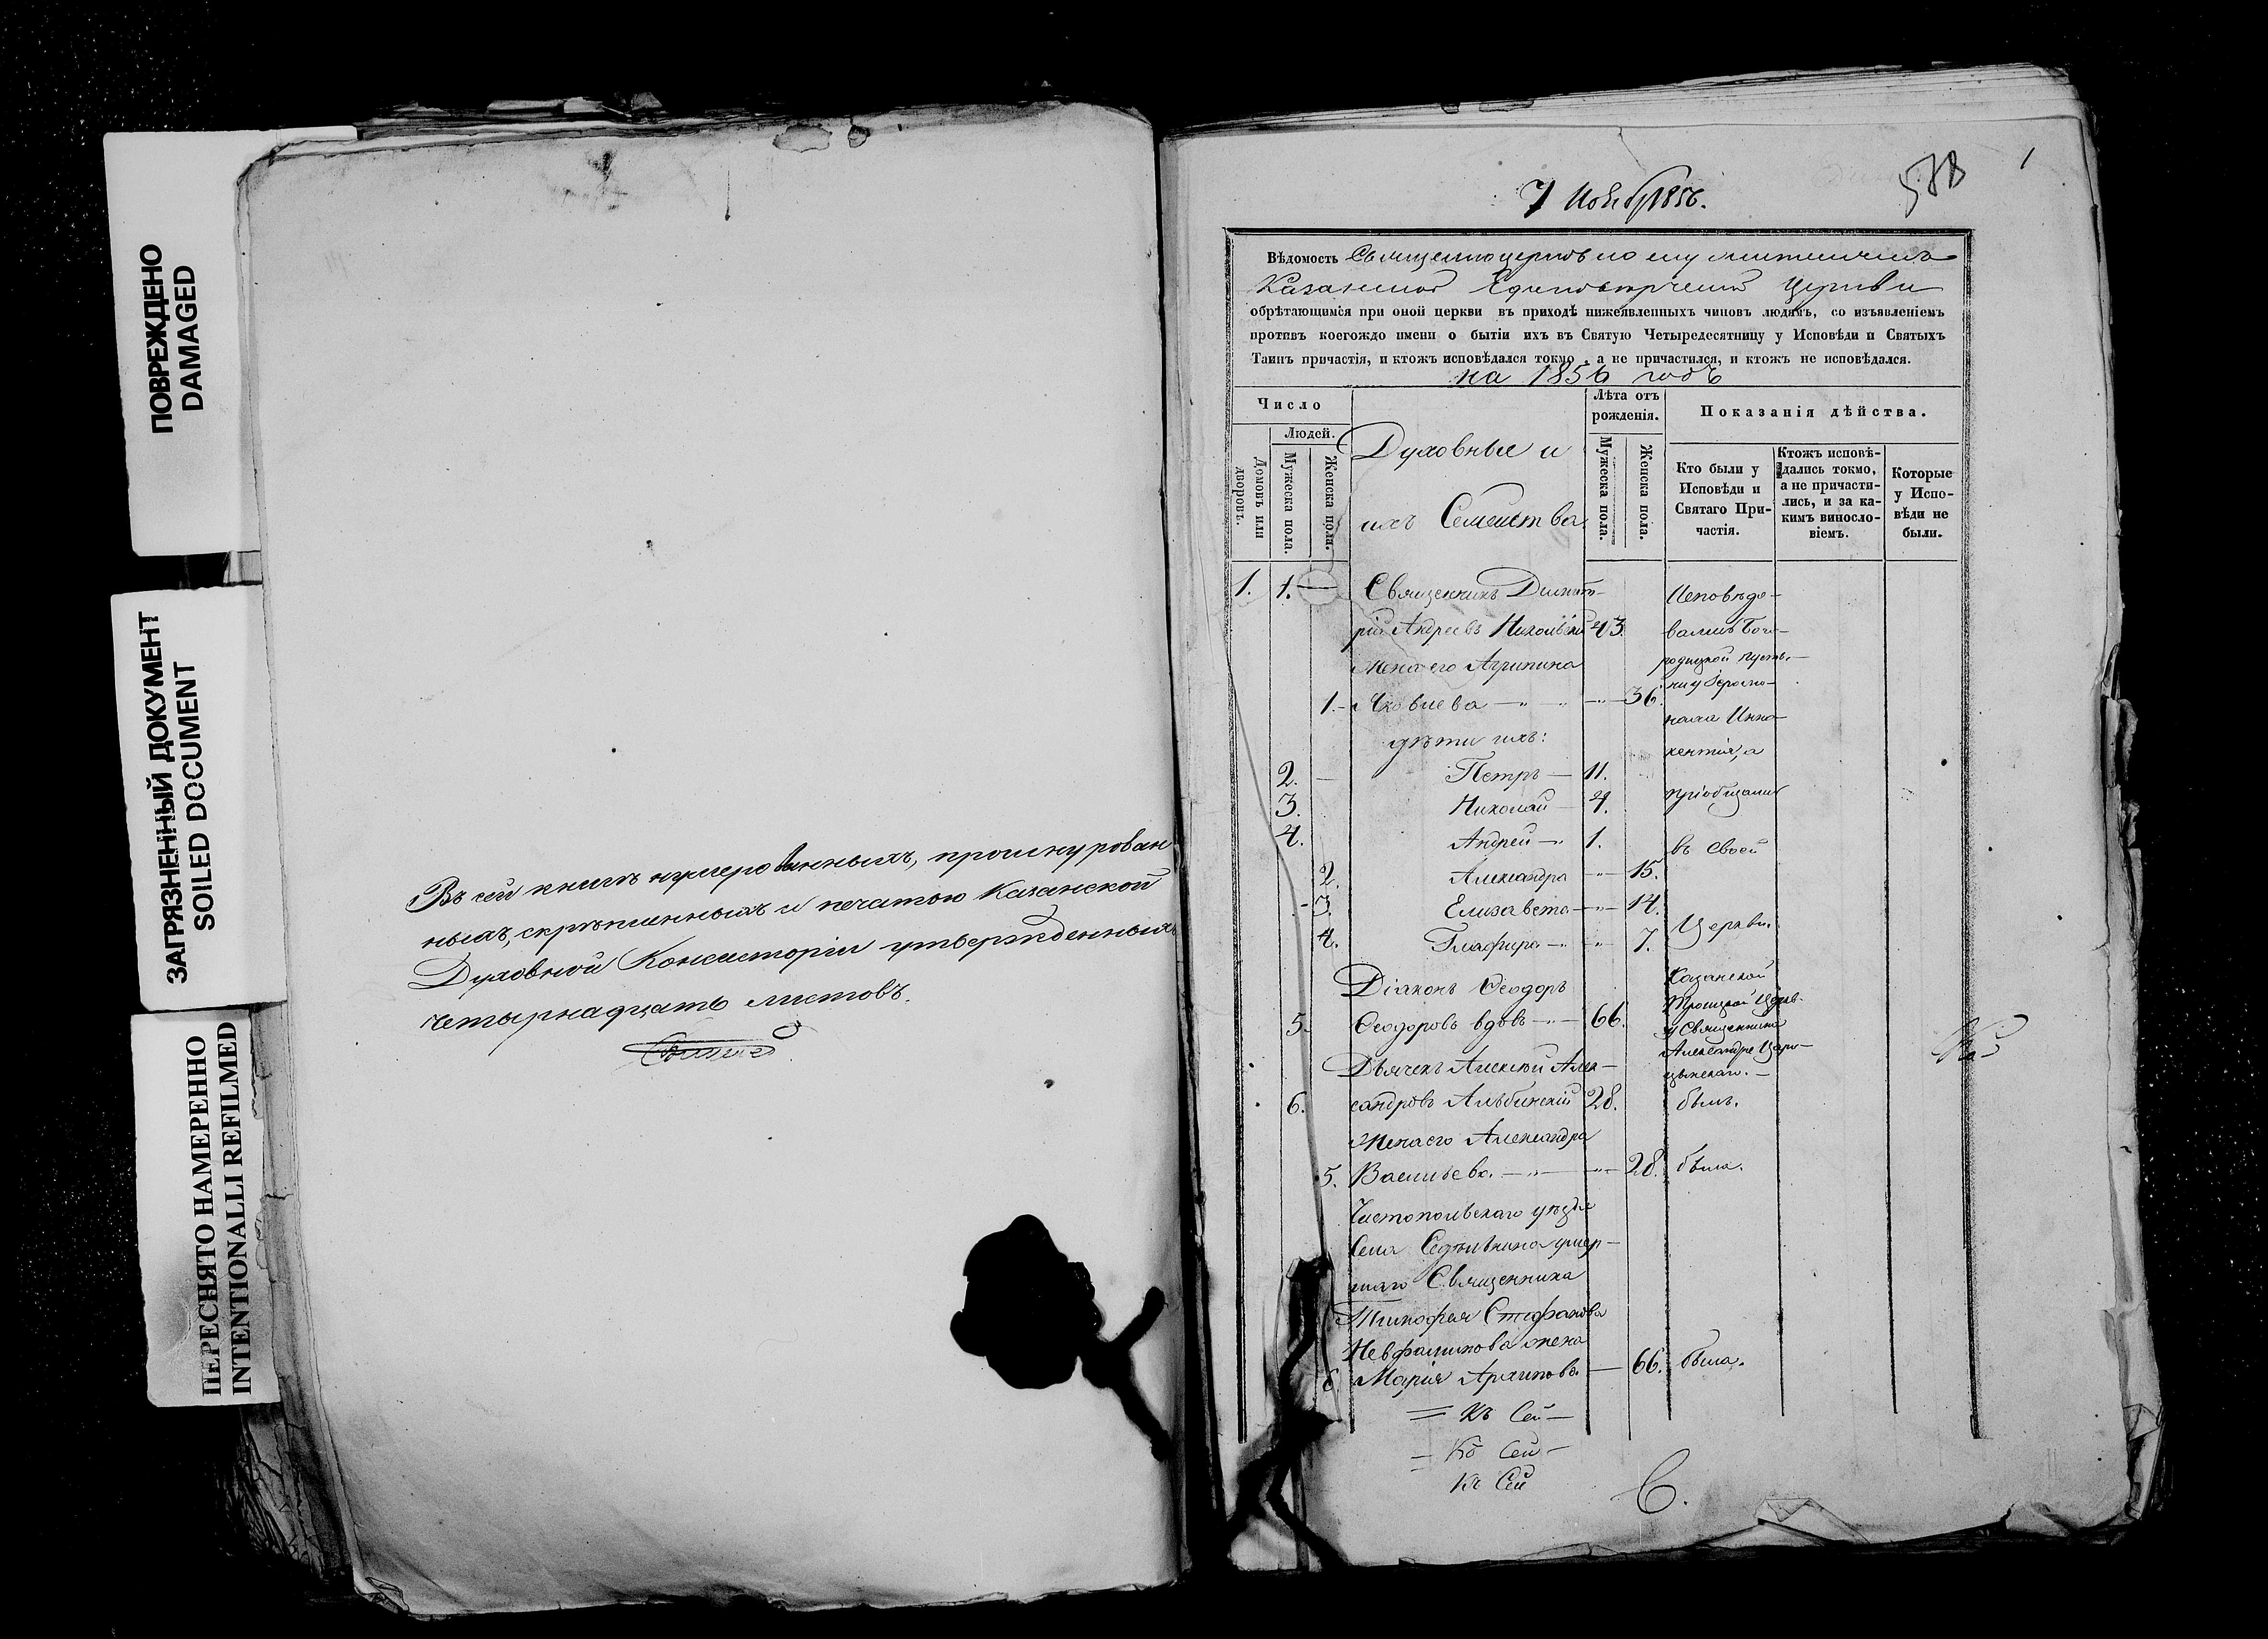 ПОВРЕЖДЕНО
DAMAGED
ЗАГРЯЗНЕННЫЙ ДОКУМЕНТ
SOILED DOCUMENT
ПЕРЕСНЯТО НАМЕРЕННО
INTENTIONALLI REFILMED
Въ сей книгѣ нумерованныхъ, прошнурован
ныхъ, скрѣпленныхъ и печатью Казанской
Духовной Консисторіи утвержденныхъ
четырнадцать листовъ.
1
7 Нояб 1856.
Вѣдомость Священноцерковно служителямъ
Казанской Единовѣрческой Церкви
обрѣтающимся при оной церкви въ приходѣ нижеявленныхъ чиновъ людямъ, со изъявленіемъ
противъ коегождо имени о бытіи ихъ въ Святую Четыредесятницу у Исповѣди и Святыхъ
Таинъ причастія, и ктожъ исповѣдался токмо, а не причастился, и ктожъ не исповѣдался.
на 1856 годъ
Число
Людей.
Домовъ или дворовъ.
Мужеска пола.
Женска пола.
Духовные и
ихъ Семейства
Лѣта отъ рожденія.
Мужеска пола.
Женска пола.
Показанія дѣйства.
Кто были у Исповѣди и Святаго Причастія.
Ктожъ исповѣдались токмо, а не причастились, и за какимъ винословіемъ.
Которые у Исповѣди не были.
1. 1. — Священникъ Димит- Исповѣдо-
рій Андреевъ Никольскій 43. вались Бого-
жена его Агрипина родицкой пусты-
1. Яковлева — 36. ни у Іеромо-
наха Инно-
дѣти ихъ: кентія, а
2. — Петръ — 11.
3. Николай — 4. пріобщались
4. Андрей — 1. въ своей
2. Александра — 15.
3. Елизавета — 14.
4. Глафира — 7. Церкви.
Діаконъ Ѳеодоръ Казанской
Троицкой Церкв.
5. Ѳеодоровъ вдовъ — 66. у Священника
Александра Цари-
Дьячекъ Алексѣй Алек- цынскаго. —
6. сандровъ Альбинскій 28. былъ.
жена его Александра
5. Васильева. — 28. была.
Чистопольскаго уѣзда
Села умер-
шаго Священника
Стефанова
Невфалимова жена
6 Марія Архипова — 66. была.
= Къ Сей —
— Къ Сей —
Къ Сей
С.